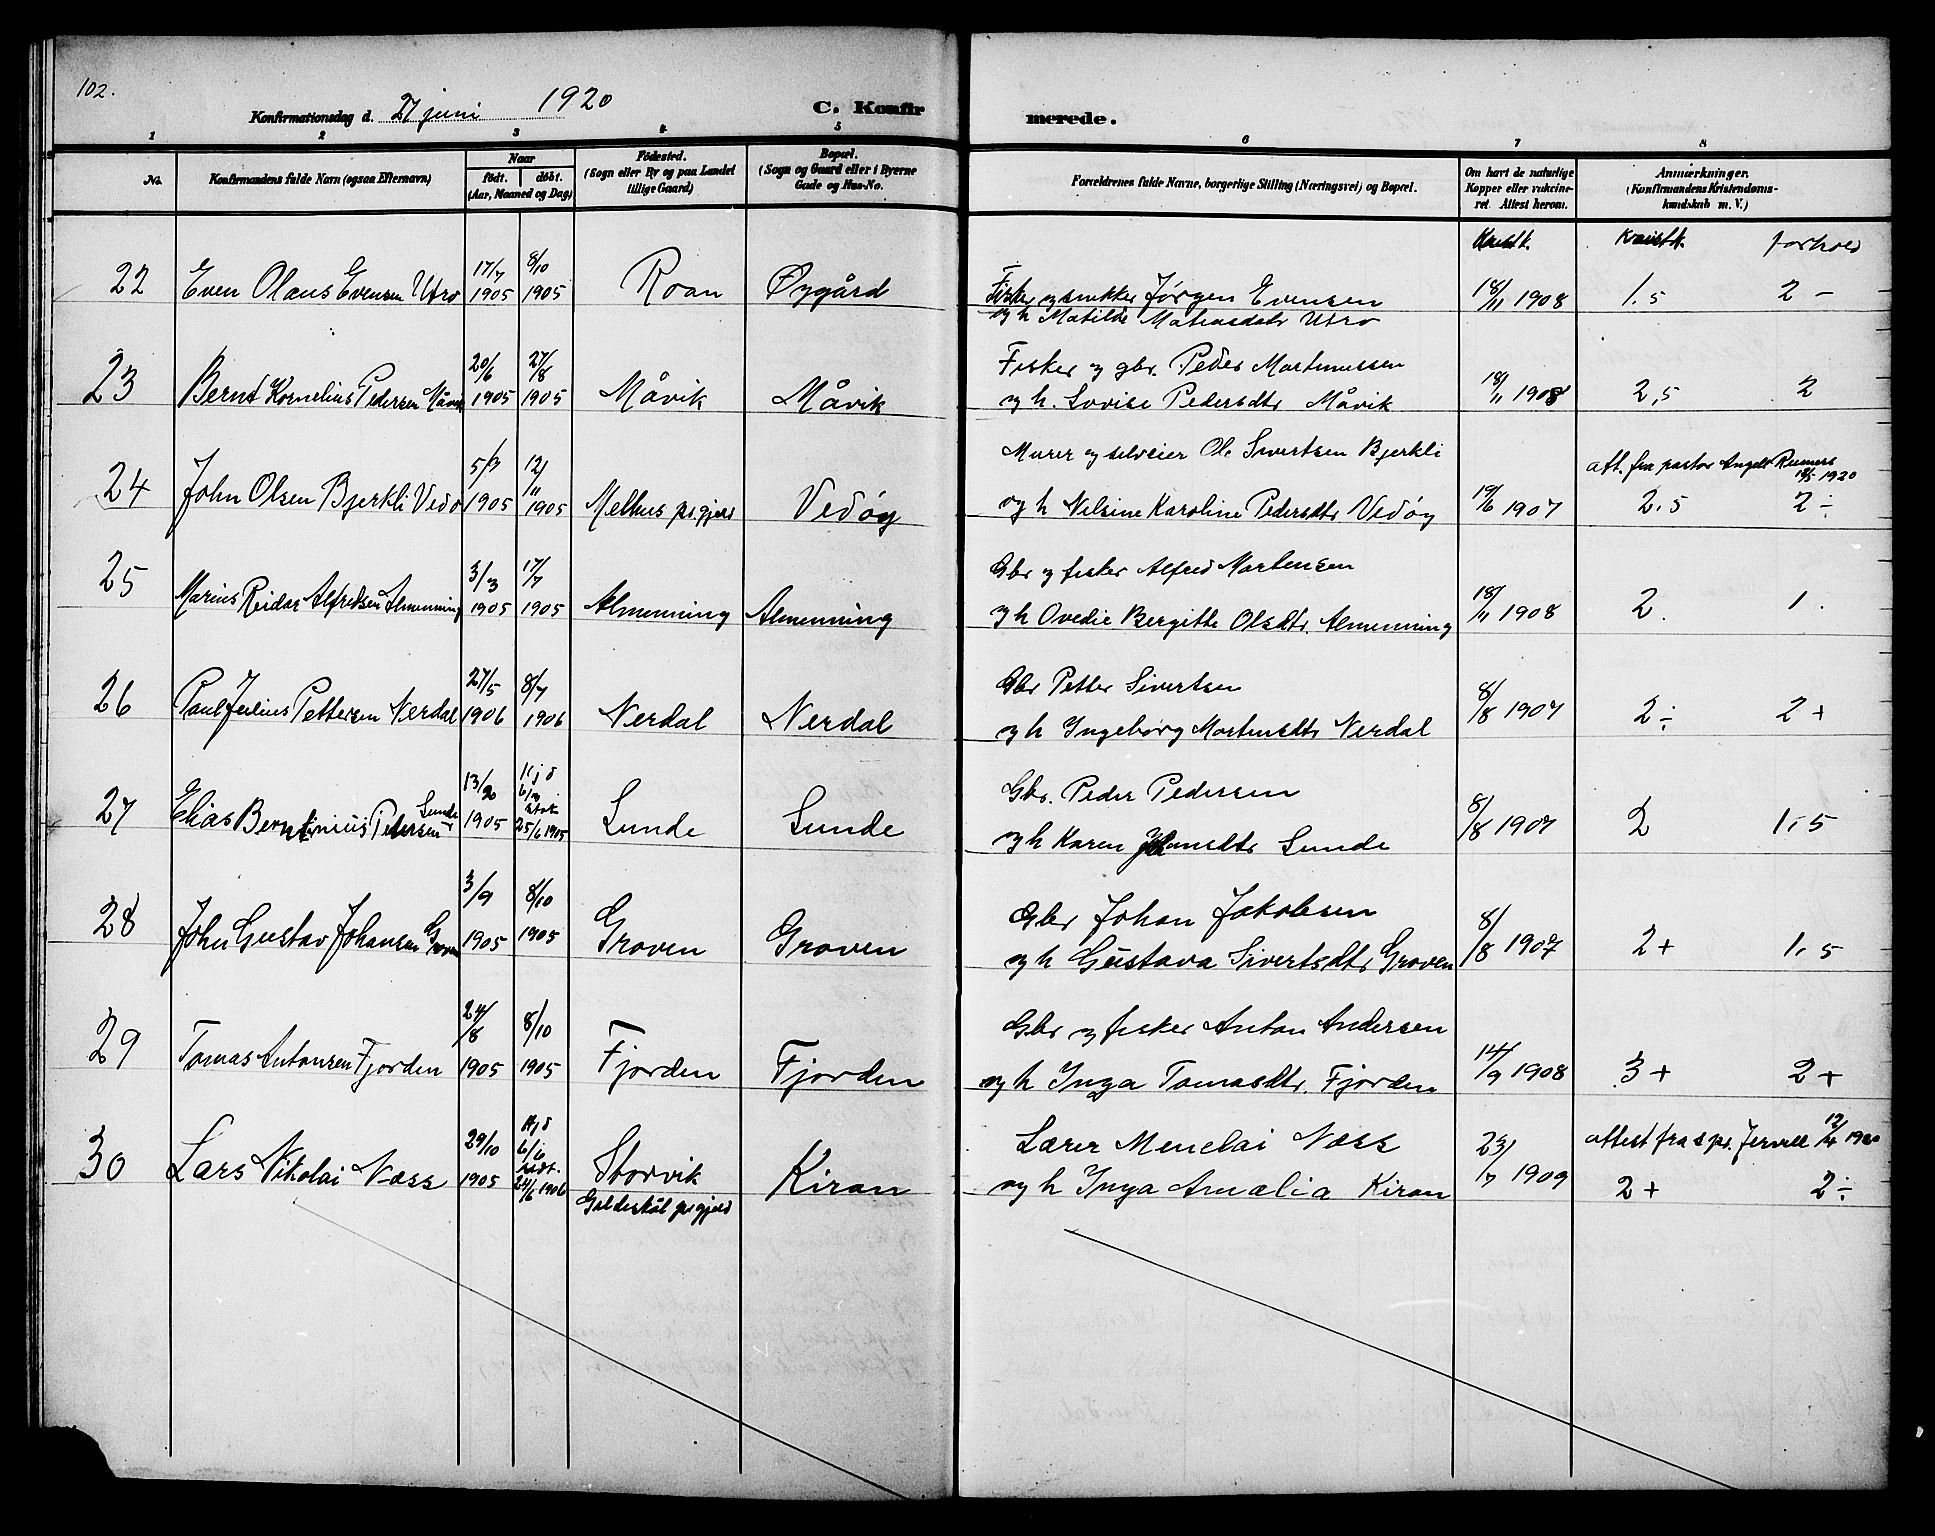 102.
Konfirmationsdag d. 27 juni 1920
C. Konfirmerede.
1 2 3 4 5 6 7 8
No.
Konfirmandens fulde Navn (ogsaa Efternavn)
Naar
født. døbt.
(Aar, Maaned og Dag)
Fødested.
(Sogn eller By og paa Landet
tillige Gaard)
Bopæl.
(Sogn og Gaard eller i Byerne
Gade og Hus-No.
Forældrenes fulde Navne, borgerlige Stilling (Næringsvei) og Bopæl.
Om havt de naturlige
Kopper eller vakcine-
ret. Attest herom.
Anmærkninger.
(Konfirmandens Kristendoms-
kundskab m. V.)
kristk. forhold
22 Even Olaus Evensen Utro 17/7 1905 8/10 1905 Roan Øygård
Fisker og snekker Jørgen Evensen
og h Matilde Matiasdatr Utro
18/11 1908 1.5 2 -
23 Bernt Kornelius Pedersen Måvik 20/6 1905 27/8 1905 Måvik Måvik
Fisker og gbr. Peder Martinussen
og h. Lovise Pedersdtr Måvik
18/11 1908 2,5 2
24 John Olsen Bjerkli Vedø 5/7 1905 12/11 1905 Melhus prgjeld Vedøy
Murer og selveier Ole Sivertsen Bjerkli
og h Nelsine Karoline Pedersdtr Vedøy
19/6 1907
att. fra pastor Angell Reimers 18/5 1920
2.5 2 ÷
25 Marius Reidar Alfredsen Almenning 3/3 1905 17/7 1905 Almenning Almenning
Gbr og fisker Alfred Mortensen
og h Ovedie Bergitte Olsdtr. Almenning
18/11 1908 2. 1.
26 Paul Julius Pettersen Nerdal 27/5 1906 8/7 1906 Nerdal Nerdal
Gbr Petter Sivertsen
og h Ingeborg Mortensdtr Nerdal
8/8 1907 2 ÷ 2 +
27 Elias Berntinius Pedersen Sunde 13/20 1905 Hjd 6/3 stadf. 25/6 1905 Sunde Sunde
Gbr. Peder Pedersen
og h Karen Sunde
8/8 1907 2 1,5
28 John Gustav Johansen Groven 3/9 1905 8/10 1905 Groven Groven
Gbr Johan Jakobsen
og h Gustava Sivertsdtr Groven
8/8 1907 2 + 1,5
29 Tomas Antonsen Fjorden 24/8 1905 8/10 1905 Fjorden Fjorden
Gbr og fisker Anton Andersen
og h Inga Tomasdtr. Fjorden
14/9 1908 3 + 2 +
30 Lars Nikolai Næss 29/10 1905 Hjd 6/6 stadf. 24/6 1906 Storvik
Gildeskål prgjeld
Kiran
Lærer Menelai Næss
og h Inga Amalia Kiran
23/7 1909
attest fra spr. Jervell 12/4 1920
2 + 2 ÷